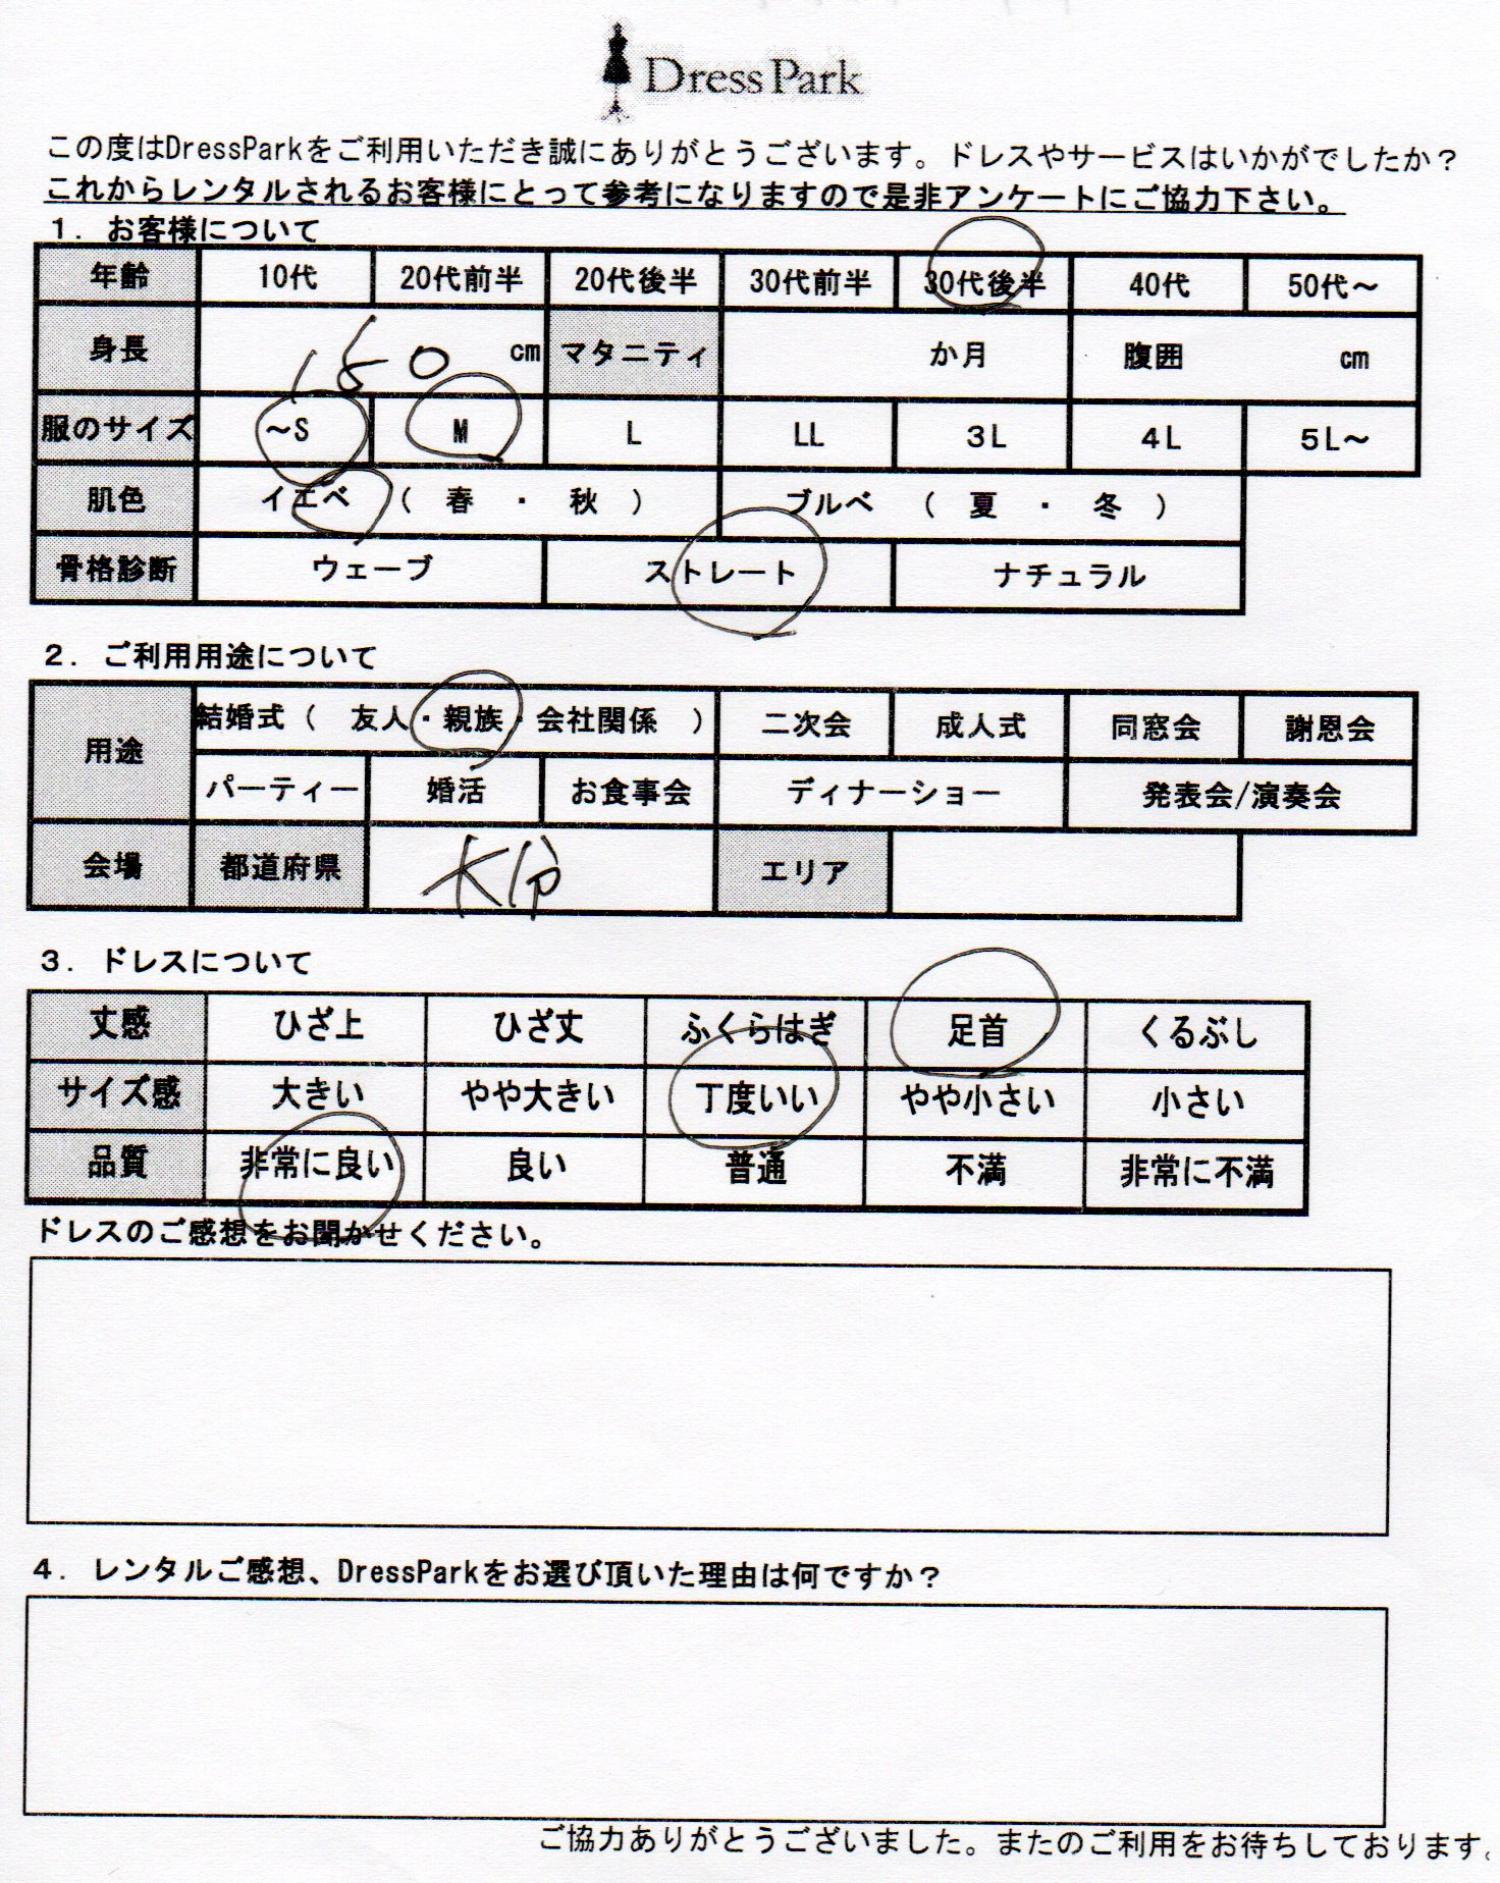 Dress Park
この度はDressParkをご利用いただき誠にありがとうございます。ドレスやサービスはいかがでしたか？
これからレンタルされるお客様にとって参考になりますので是非アンケートにご協力下さい。
１．お客様について
年齢 10代 20代前半 20代後半 30代前半 30代後半 40代 50代～
身長 150 cm マタニティ か月 腹囲 cm
服のサイズ ～S M L LL 3L 4L 5L～
肌色 イエベ （ 春 ・ 秋 ） ブルベ （ 夏 ・ 冬 ）
骨格診断 ウェーブ ストレート ナチュラル
２．ご利用用途について
用途 結婚式（ 友人・親族・会社関係 ） 二次会 成人式 同窓会 謝恩会
パーティー 婚活 お食事会 ディナーショー 発表会/演奏会
会場 都道府県 大分 エリア
３．ドレスについて
丈感 ひざ上 ひざ丈 ふくらはぎ 足首 くるぶし
サイズ感 大きい やや大きい 丁度いい やや小さい 小さい
品質 非常に良い 良い 普通 不満 非常に不満
ドレスのご感想をお聞かせください。
４．レンタルご感想、DressParkをお選び頂いた理由は何ですか？
ご協力ありがとうございました。またのご利用をお待ちしております。